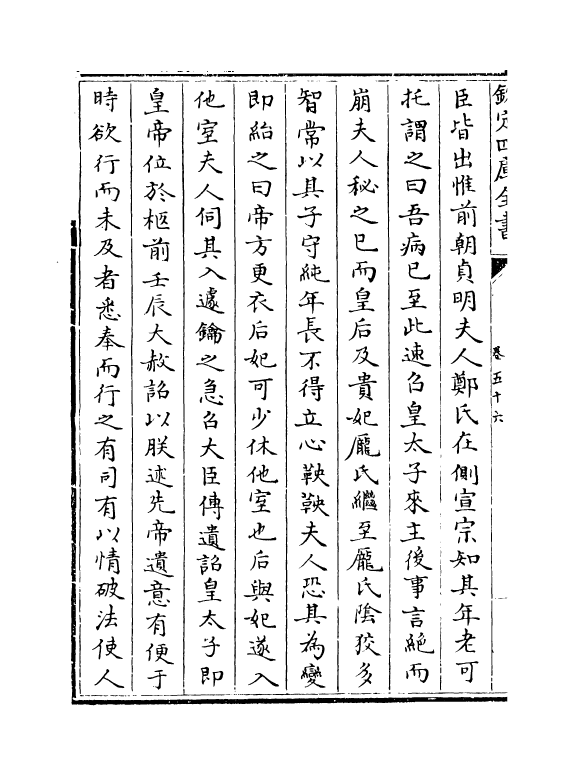 欽定四庫全書
卷五十六
臣皆出惟前朝貞明夫人鄭氏在側宣宗知其年老可
托謂之曰吾病已至此速召皇太子來主後事言絶而
崩夫人秘之已而皇后及貴妃龐氏繼至龐氏陰狡多
智常以其子守純年長不得立心鞅鞅夫人恐其為變
即紿之曰帝方更衣后妃可少休他室也后與妃遂入
他室夫人伺其入遽鑰之急召大臣傳遺詔皇太子即
皇帝位於柩前壬辰大赦詔以朕述先帝遺意有便于
時欲行而未及者悉奉而行之有司有以情破法使人